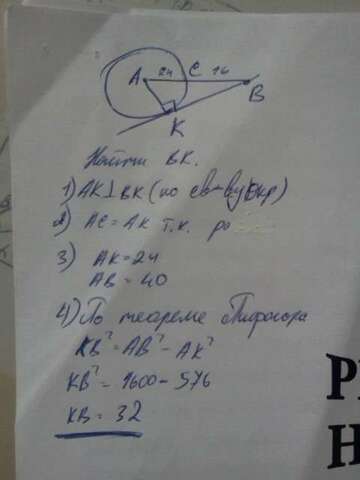 A 24 C 16
B
K
Найти BK.
1) AK⊥BK (по
2) AC = AK т.к. ро
3) AK = 24
AB = 40
4) По теореме Пифагора
KB² = AB² - AK²
KB² = 1600 - 576
KB = 32